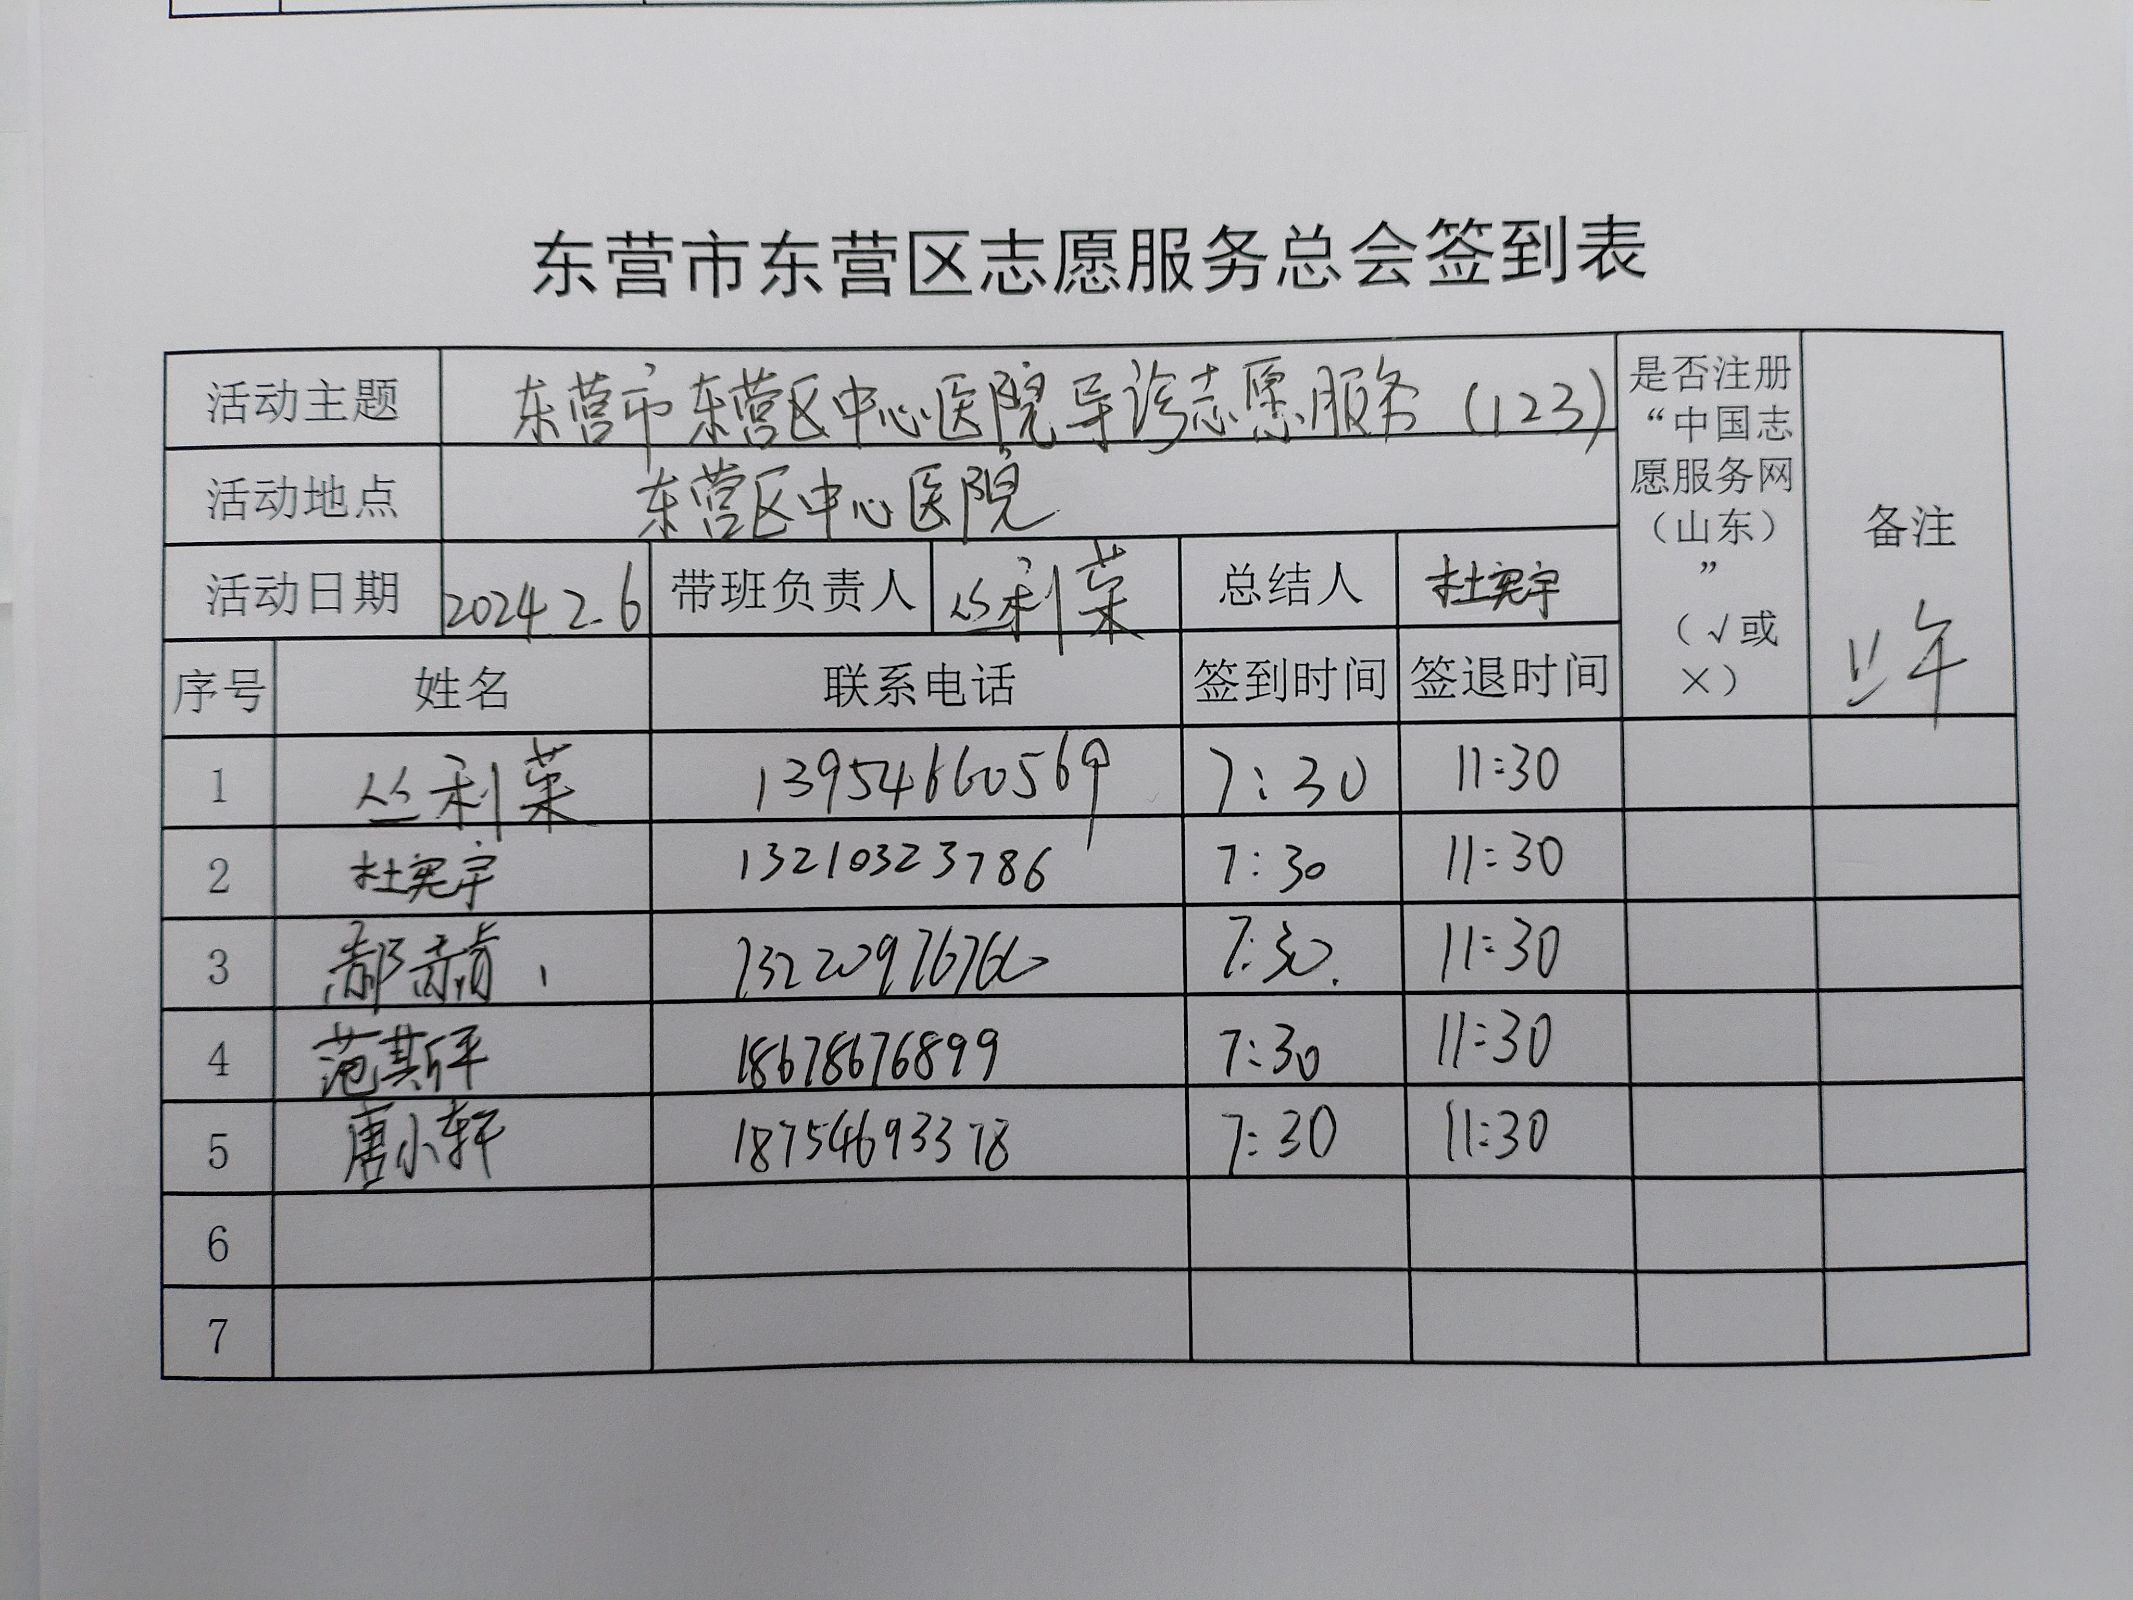 东营市东营区志愿服务总会签到表
活动主题 东营市东营区中心医院导诊志愿服务（123） 是否注册“中国志愿服务网（山东）”（√或×） 备注 上午
活动地点 东营区中心医院
活动日期 2024.2.6 带班负责人 丛利菜 总结人 杜宪宇
序号 姓名 联系电话 签到时间 签退时间
1 丛利菜 13954660569 7:30 11:30
2 杜宪宇 13210323786 7:30 11:30
3 郝 7:30. 11:30
4 范其所平 18678676899 7:30 11:30
5 唐小轩 18754693378 7:30 11:30
6
7